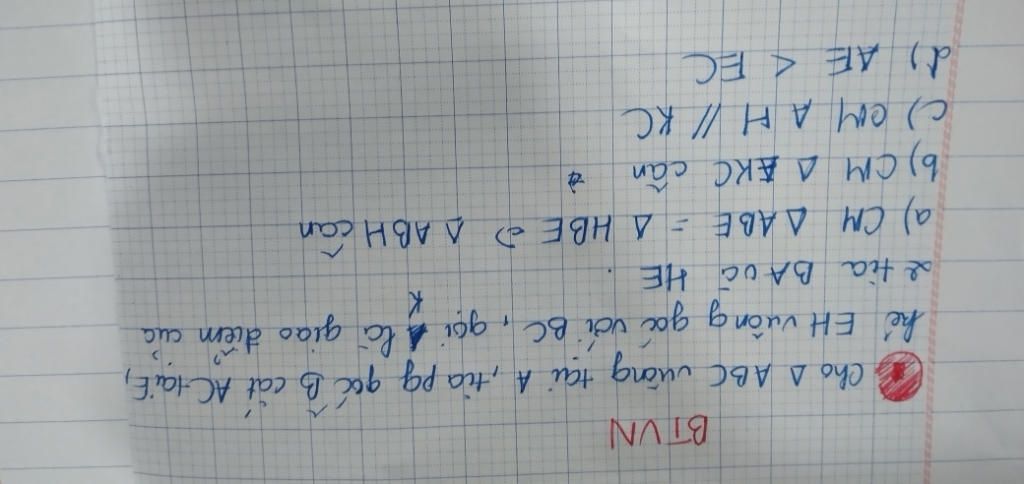 BTVN
Cho Δ ABC vuông tại A, tia pg góc B̂ cắt AC tại E,
kẻ EH vuông góc với BC, gọi K là giao điểm của
2 tia BA và HE.
a) CM Δ ABE = Δ HBE => Δ ABH cân
b) CM Δ EKC cân
c) CM A H // KC
d) AE < EC